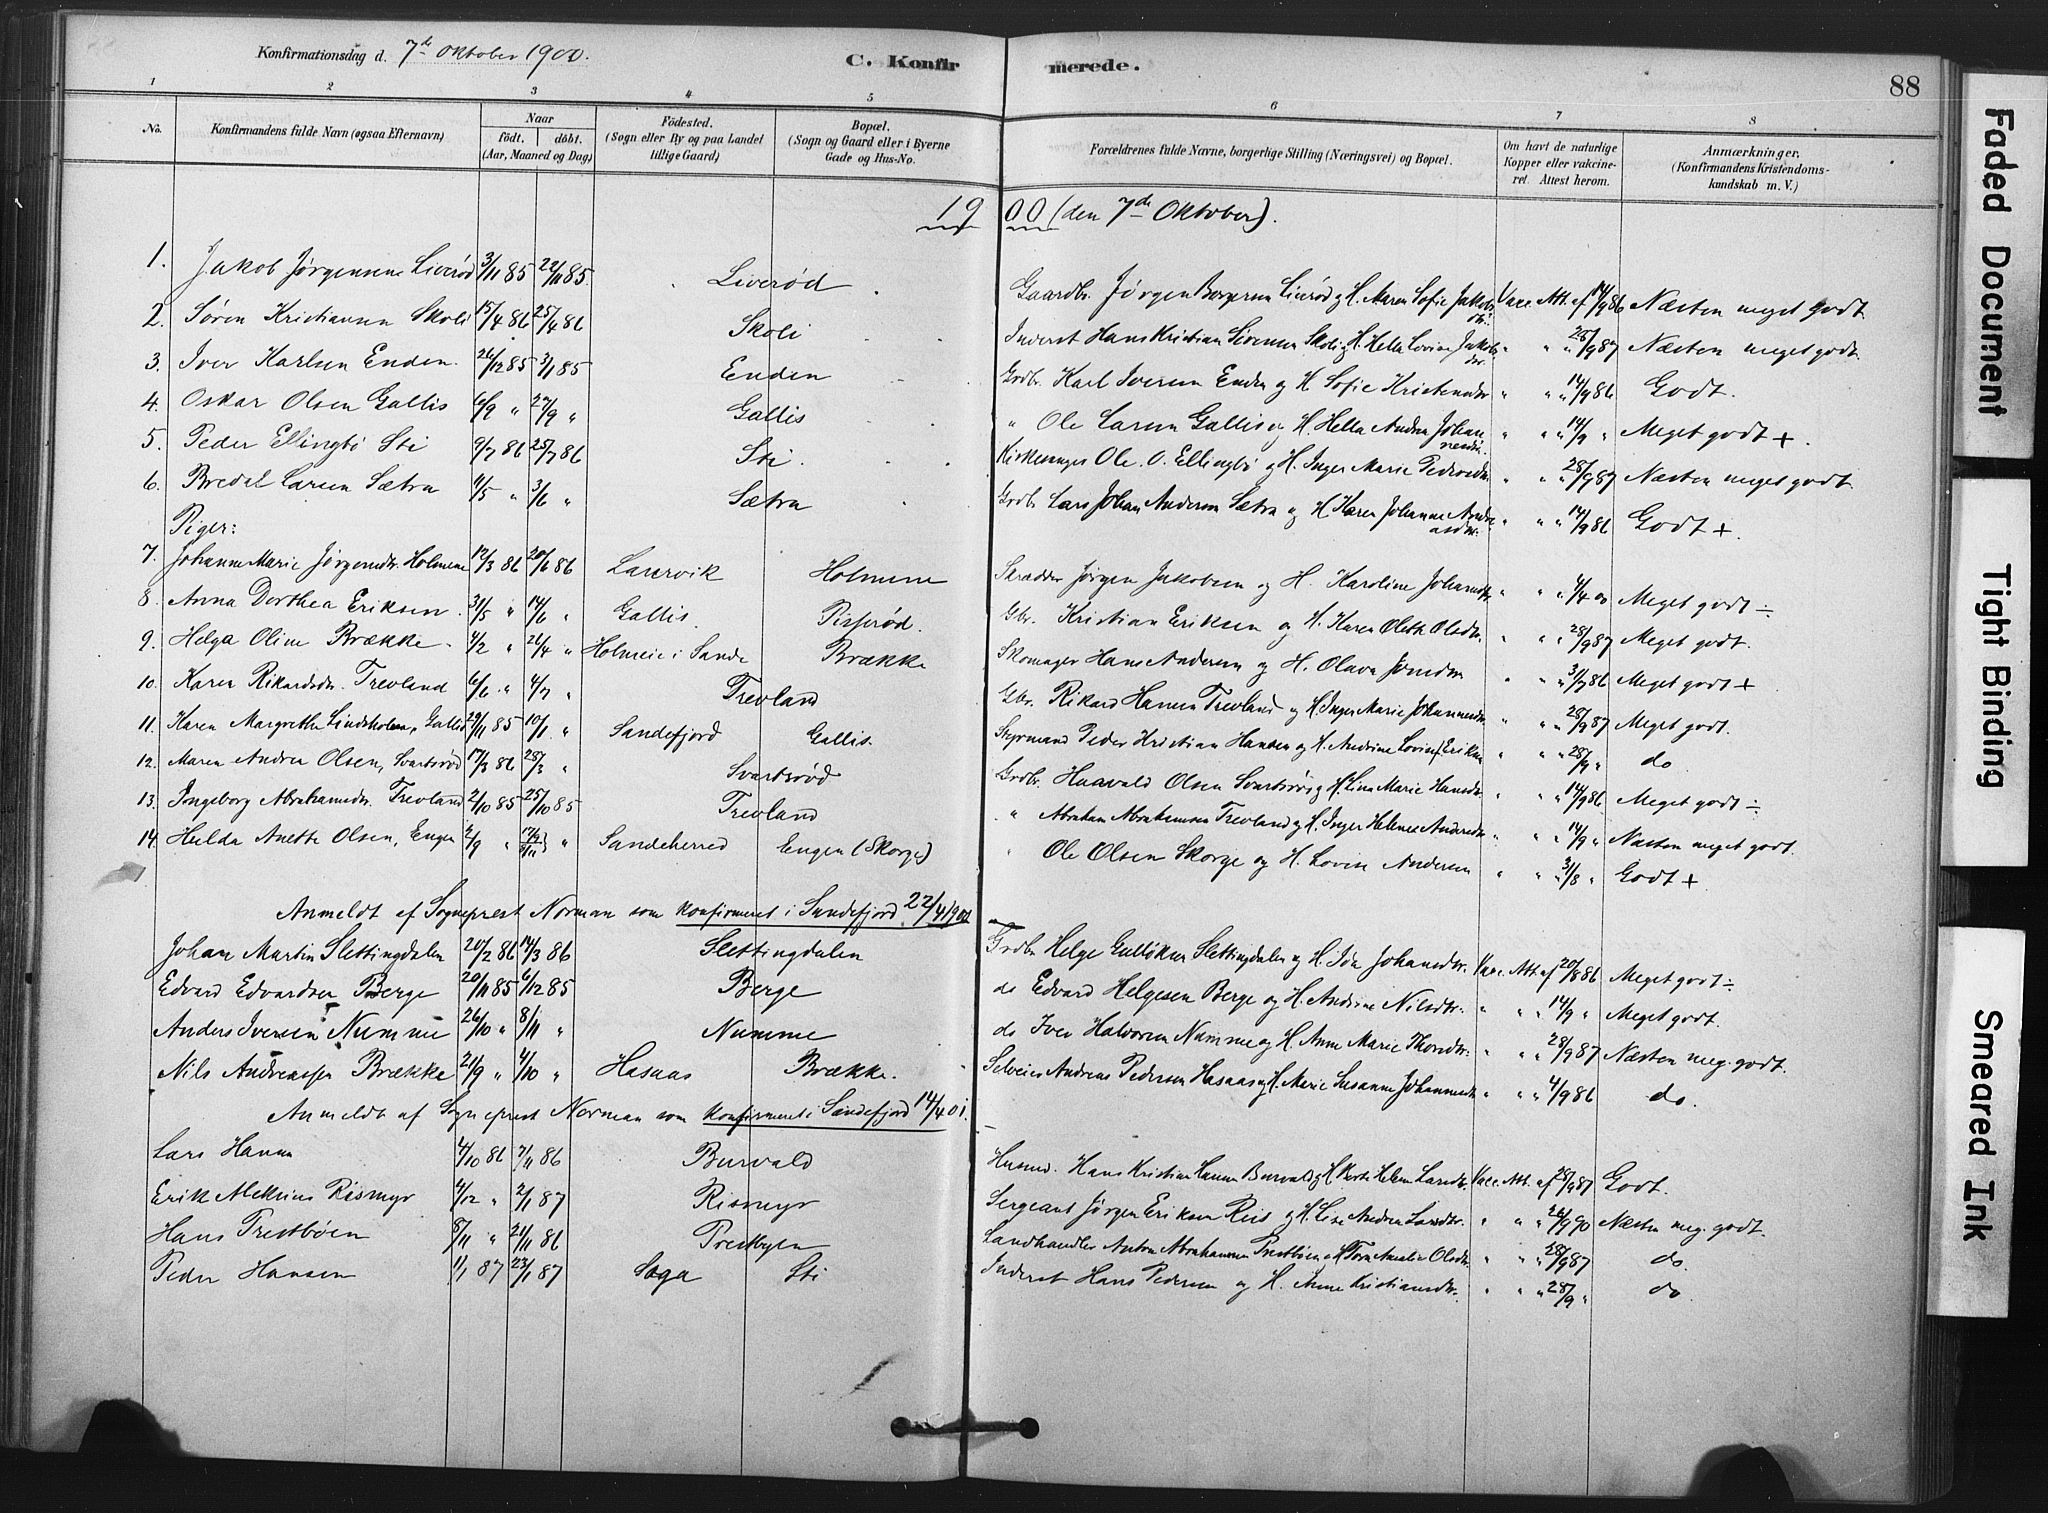 Konfirmationsdag d. 7de Oktober 1900.
C. Konfirmerede.
88
1 2 3 4 5 6 7 8
No.
Konfirmandens fulde Navn (ogsaa Efternavn)
Naar
födt. döbt.
(Aar, Maaned og Dag)
Födested.
(Sogn eller By og paa Landet tillige Gaard)
Bopæl.
(Sogn og Gaard eller i Byerne Gade og Hus-No.
Forældrenes fulde Navne, borgerlige Stilling (Næringsvei) og Bopæl.
Om havt de naturlige Kopper eller vakcineret. Attest herom.
Anmærkninger.
(Konfirmandens Kristendomskundskab m. V.)
1900 (den 7de Oktober).
1. Jakob Jørgensen Liverød 3/11 85 22/11 85. Liverød Gaardbr. Jørgen Liverød & H. Maren Sofie Jakobsdtr. Vacc. Att. af 14/9 86 Næsten meget godt
2. Søren Kristiansen Skoli 15/4 86 25/4 86 Skoli Inderst Hans Kristian Sørensen Skoli & H. Hella Lovise Jakobsdr. " " " 28/9 87 Næsten meget godt.
3. Iver Karlsen Enden. 26/12 85 3/1 85 Enden Grdbr. Karl Iversen Enden og H. Sofie Kristensdtr " " " 14/9 86 Godt.
4. Oskar Olsen Gallis 6/9 " 27/9 " Gallis " Ole Larsen Gallis og H. Hella Andrea Johannesdtr. " " " 14/9 " Meget godt +.
5. Peder Ellingbø Sti 9/7 86 25/7 86 Sti. Kirkesanger Ole O. Ellingbø og H. Inger Marie Pedersdtr. " " " 28/9 87 Næsten meget godt.
6. Bredal Larsen Sætra 4/5 " 3/6 " Sætra Grdbr. Lars Johan Andersen Sætra og H. Karen Johanne Andreasdtr. " " " 14/9 86 Godt +.
Piger:
7. Johanne Marie Jørgensdtr. Holmene 12/3 86 20/6 86 Laurvik Holmene Skrædder Jørgen Jakobsen og H. Karoline Johannesdtr " " " 4/4 00 Meget godt ÷
8. Anna Dorthea Eriksen. 31/5 " 14/6 " Gallis. Pisserød. Gbr. Kristian Eriksen og H. Karen Olethe Olsdtr. " " " 28/9 87 Meget godt.
9. Helga Oline Brække. 4/2 " 26/4 " Holmeie i Sande Brække Skomager Hans Andersen og H. Olava Jonsdtr " " " 31/7 86 Meget godt +
10. Karen Rikardsdr. Trevland 6/6. " 4/7 " Trevland Gbr. Rikard Hansen Trevland og H. Inger Marie Johannesdtr " " " 28/9 87 Meget godt.
11. Karen Margrethe Lindsholm, Gallis 29/11 85 10/1 " Sandefjord Gallis. Styrmand Peder Kristian Hansen og H. Andrine Lovise Eriksen " " " 28/9 " do
12. Maren Andrea Olsen, Svartsrød 17/3 86 28/3 " Svartsrød Grdbr. Haavald Olsen Svartsrød og H. Lina Marie Hansdtr. " " " 14/9 86 Meget godt ÷
13. Ingeborg Abrahamsdr. Trevland 2/10 85 25/10 85 Trevland " Abraham Abrahamsen Trevland og H. Inger Helene Andersdtr " " " 14/9 " Næsten meget godt.
14. Hulda Anette Olsen, Engen 4/9 " " Sandeherred Engen (Skorge) " Ole Olsen Skorge og H. Lovise Andersen " " " 3/8 " Godt +
Anmeldt af Sogneprest Norman som konfirmeret i Sandefjord 22/4 1900
Johan Martin Slettingdalen 20/2 86 14/3 86 Slettingdalen Grdbr. Helge Slettingdalen og H. Ida Johansdtr. Vacc. Att. af 20/8 86 Meget godt ÷
Edvard Edvardsen Berge 20/11 85 6/12 85 Berge do Edvard Helgesen Berge og H. Andrine Nilsdtr. " " " 14/9 " Meget godt.
Anders Iversen Numme 26/10 " 8/11 " Numme do Iver Halvorsen Numme og H. Anne Marie Thorsdtr. " " " 28/9 87 Næsten meg. godt.
Nils Andreassen Brække 21/9 " 4/10 " Hasaas Brække. Selveier Andreas Pedersen Hasaas og H. Marie Susanne Johannesdtr " " " 4/9 86 do.
Anmeldt af Sogneprest Norman som konfirmeret i Sandefjord 14/4 01.
Lars Hansen 4/10 86 7/11 86 Burvald Husmd. Hans Kristian Hansen Burvald og H. Helene Larsdtr. Vacc. Att. af 28/9 87 Godt.
Erik Aleksius Rismyr 4/12 " 2/1 87 Rismyr Sergeant Jørgen Eriksen Reis og H. Lise Andrea Larsdtr. " " " 26/9 90 Næsten meg. godt.
Hans Prestbøen 8/11 " 21/11 86 Prestbyen Landhandler Anton Abrahamsen Prestbøen og H. Amalie Olsdtr " " " 28/9 87 do.
Peder Hansen 11/1 87 23/1 87 Soga Sti Inderst Hans Pedersen og H. Anne Kristiansdtr. " " " 28/9 " do.
Faded Document
Tight Binding
Smeared Ink